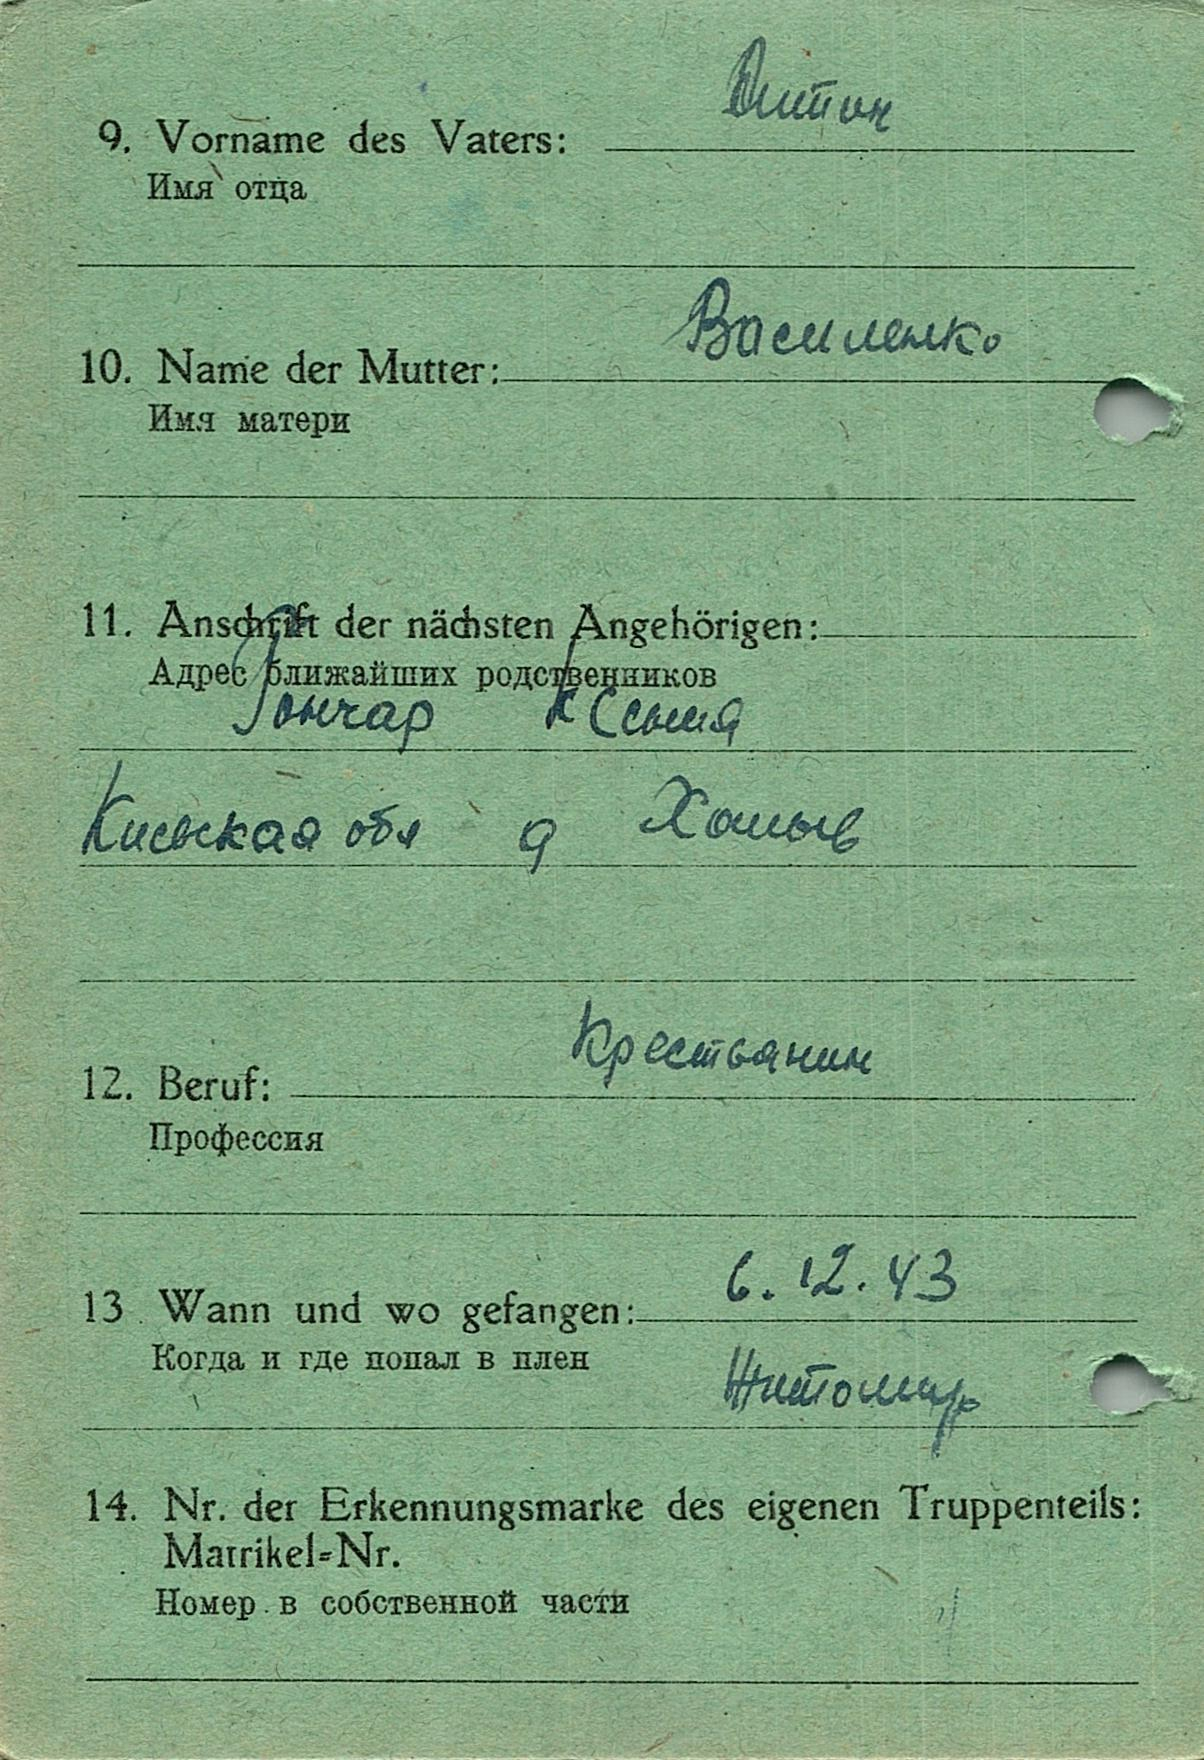 Антон
9. Vorname des Vaters:
Имя отца
Василенко
10. Name der Mutter:
Имя матери
11. Anschrift der nächsten Angehörigen:
Адрес ближайших родственников
Гончар Ксения
Киевская обл д
12. Beruf: Крестьянин
Профессия
13. Wann und wo gefangen: 6.12.43
Когда и где попал в плен Житомир
14. Nr. der Erkennungsmarke des eigenen Truppenteils:
Matrikel-Nr.
Номер в собственной части